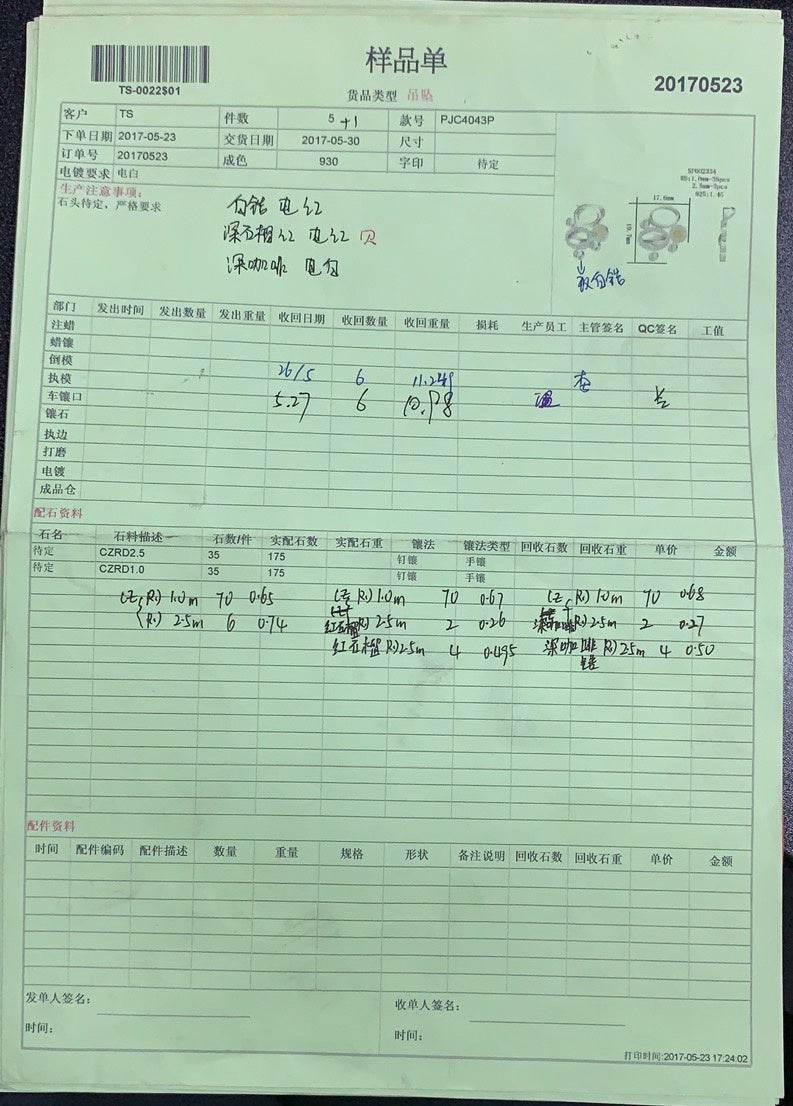 样品单
TS-0022$01
货品类型 吊坠
20170523
客户 TS 件数 5 +1 款号 PJC4043P
下单日期 2017-05-23 交货日期 2017-05-30 尺寸
订单号 20170523 成色 930 字印 待定
电镀要求 电白
生产注意事项:
石头待定，严格要求
白锆 电红
深石榴红 电红
深咖啡 电白
SP002334
17.6mm
19.7mm
部门 发出时间 发出数量 发出重量 收回日期 收回数量 收回重量 损耗 生产员工 主管签名 QC签名 工值
注蜡
蜡镶
倒模
执模 26/5 6 11.24g
车镶口 5.27 6 10.98
镶石
执边
打磨
电镀
成品仓
配石资料
石名 石料描述 石数/件 实配石数 实配石重 镶法 镶法类型 回收石数 回收石重 单价 金额
待定 CZRD2.5 35 175 钉镶 手镶
待定 CZRD1.0 35 175 钉镶 手镶
1.0m 70 0.65 1.0m 70 0.67 1.0m 70 0.68
2.5m 6 0.74 2.5m 2 0.26 2.5m 2 0.27
红石榴 2.5m 4 0.495 深咖啡 2.5m 4 0.50
配件资料
时间 配件编码 配件描述 数量 重量 规格 形状 备注说明 回收石数 回收石重 单价 金额
发单人签名: 收单人签名:
时间: 时间:
打印时间:2017-05-23 17:24:02